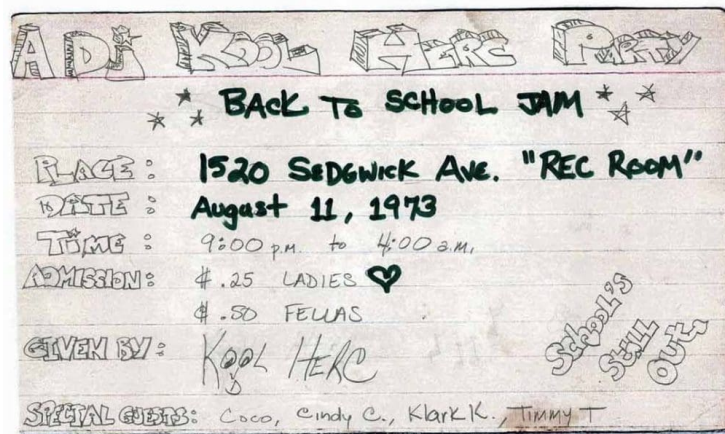 A DJ KOOL HERC PARTY
BACK TO SCHOOL JAM
PLACE: 1520 SEDGWICK AVE. "REC ROOM"
DATE: August 11, 1973
TIME: 9:00 p.m. to 4:00 a.m.
ADMISSION: $.25 LADIES ♥
$.50 FELLAS
SCHOOL'S STILL OUT.
GIVEN BY: KOOL HERC
SPECIAL GUESTS: Coco, Cindy C., Klark K., Timmy T